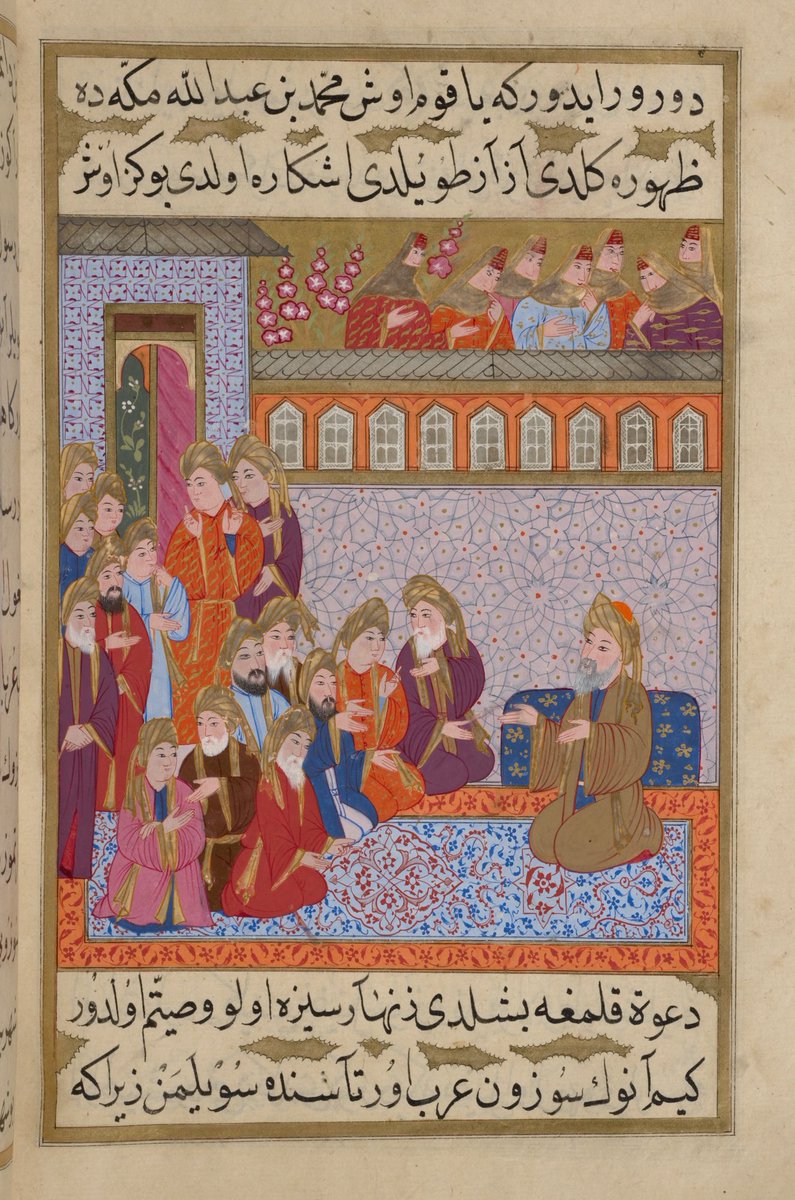 دورور ايدور كه يا قوم اوش محمّد بن عبد الله مكّه ده
ظهوره كلدى آز آز طويلدى اشكاره اولدى بوكز اوش
دعوة قلمغه بشلدى زنهار سيزه اولو وصيتم اولدور
كيم آنوك سوزون عرب اورتاسنده سويلمن زيرا كه